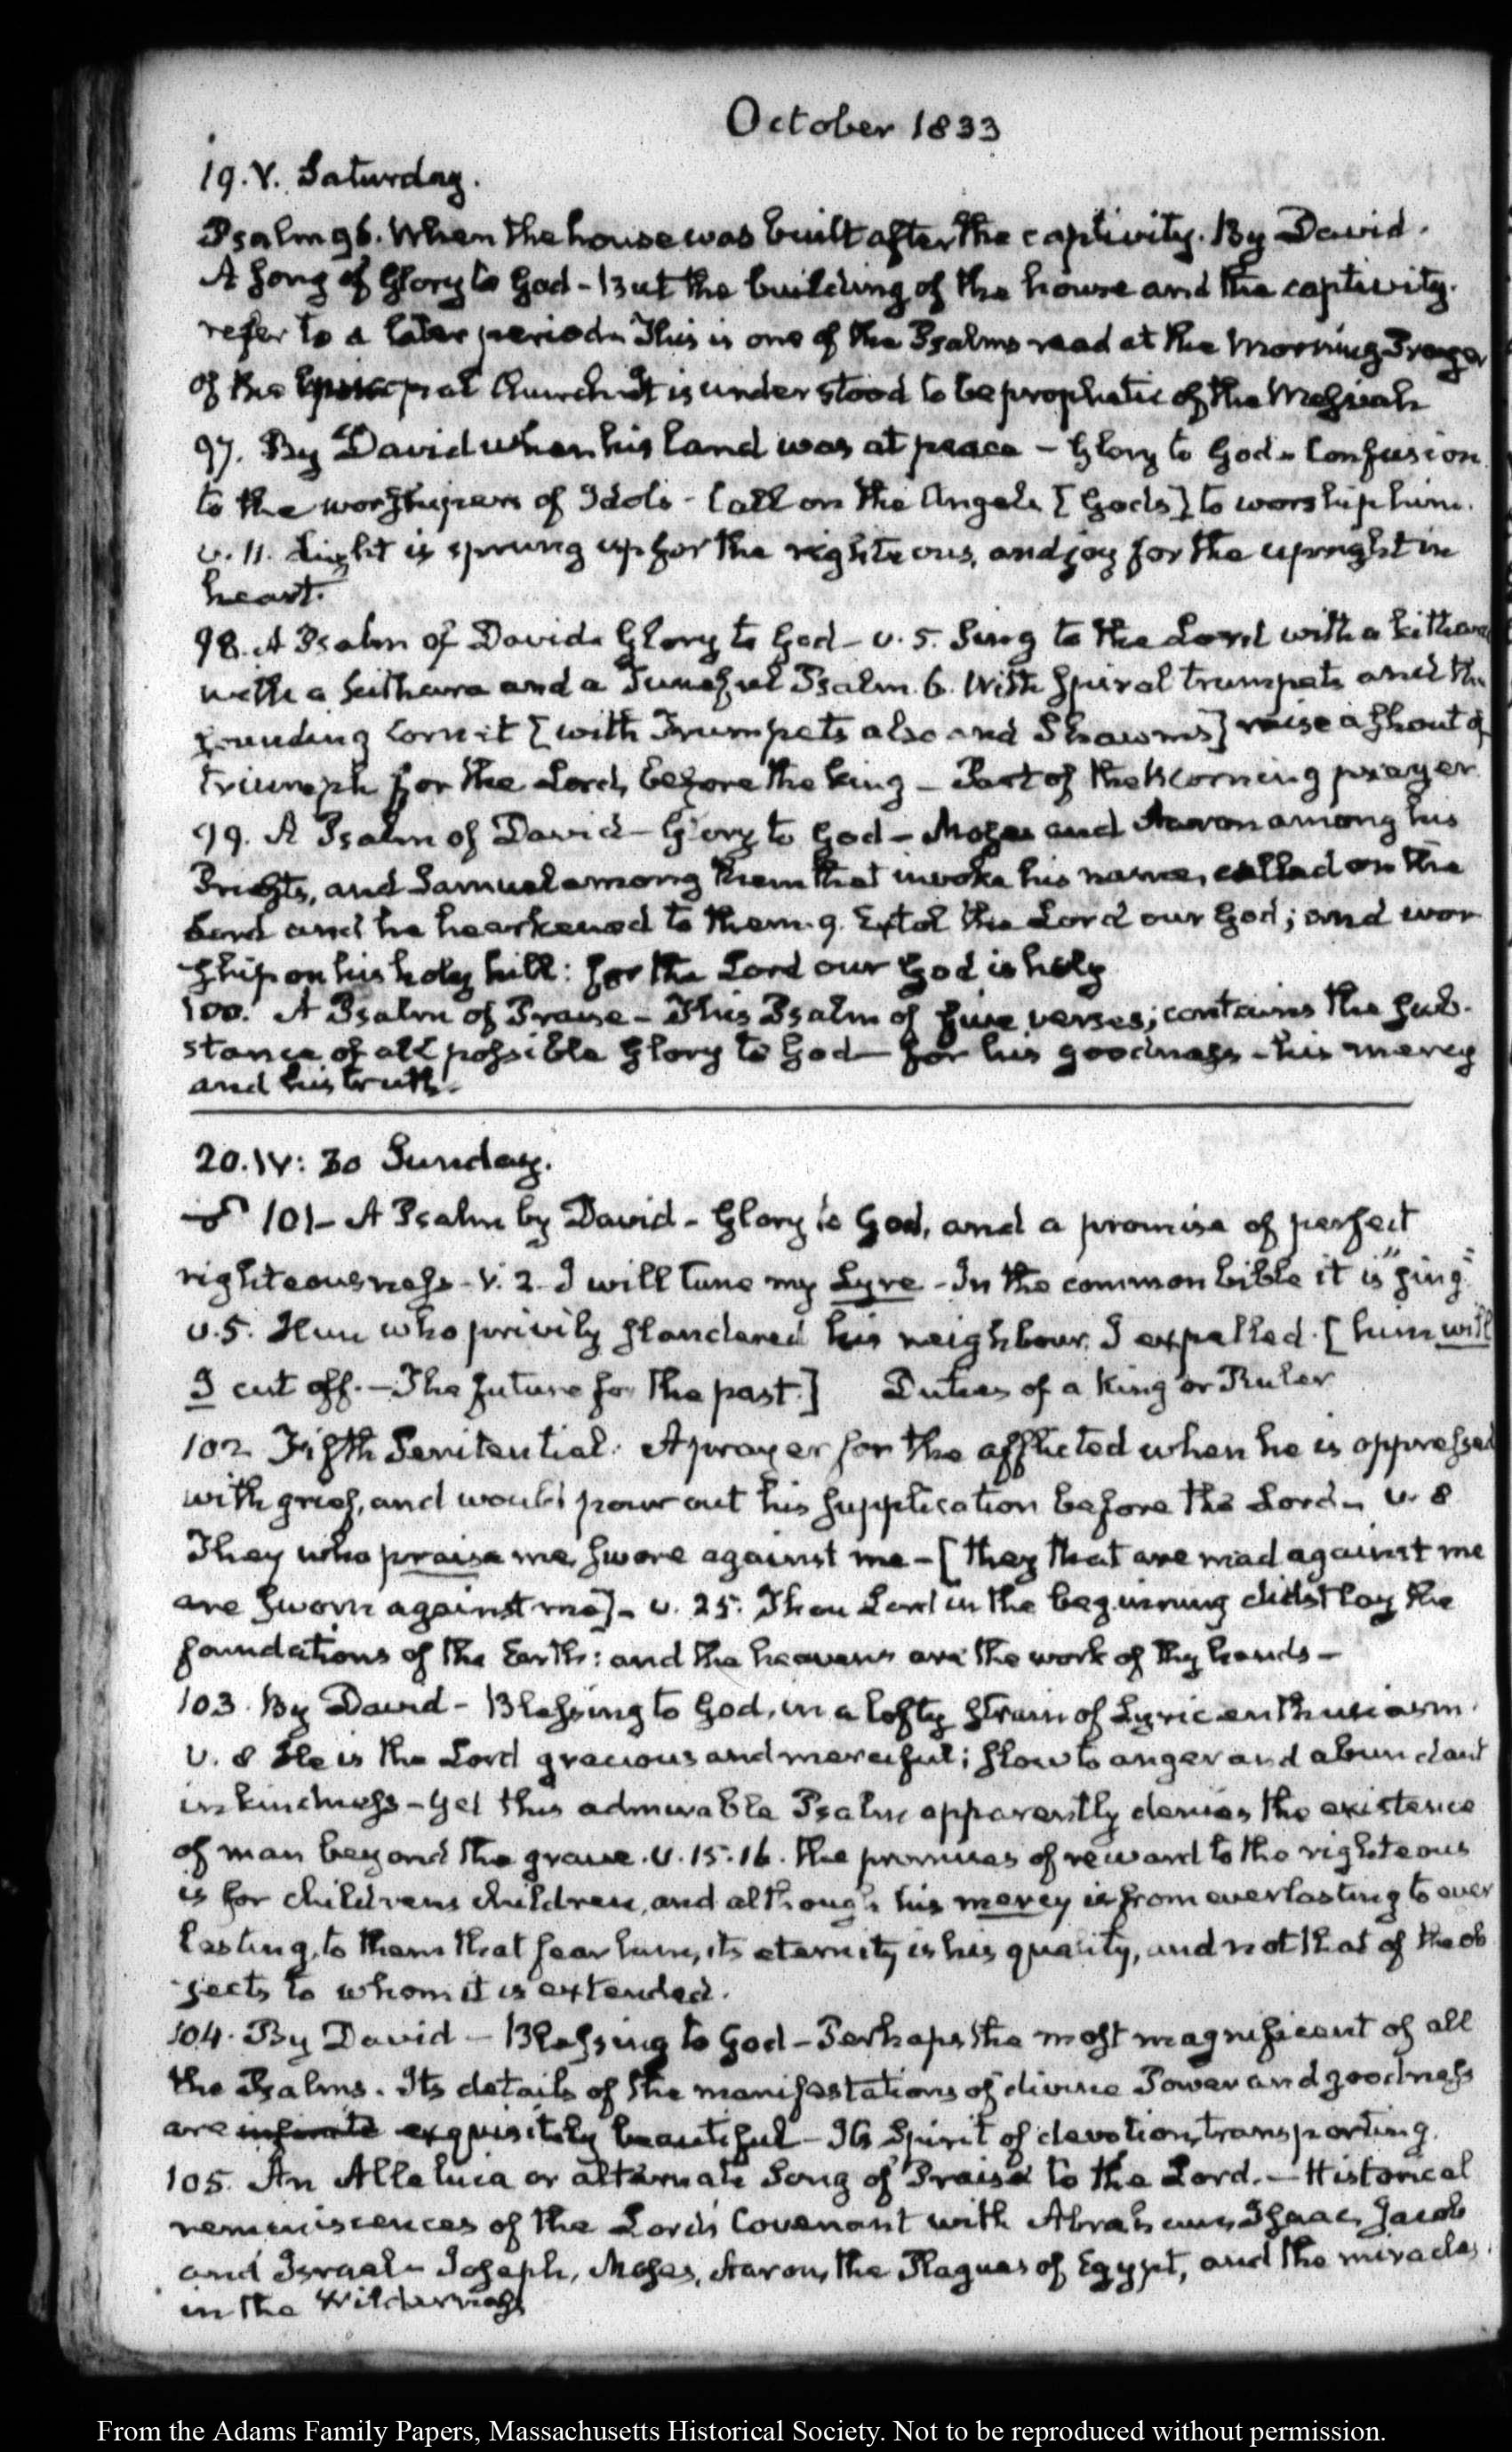 October 1833
19. V. Saturday.
Psalm 96. When the house was built after the captivity. By David.
A Song of Glory to God - But the building of the house and the captivity.
refer to a later period. This is one of the Psalms read at the Morning Prayer
of the Episcopal Church. It is understood to be prophetic of the Messiah
97. By David when his land was at peace - Glory to God - Confusion
to the worshippers of Idols - Call on the Angels [Gods] to worship him.
v. 11. Light is sprung up for the righteous, and joy for the upright in
heart.
98. A Psalm of David. Glory to God - v. 5. Sing to the Lord with a kithara
with a kithara and a Tuneful Psalm. 6. With spiral trumpets and the
sounding Cornet [with Trumpets also and Shawms] raise a shout of
triumph for the Lord, before the king - Part of the Morning prayer
99. A Psalm of David - Glory to God - Moses and Aaron among his
Priests, and Samuel among them that invoke his name, called on the
Lord and he hearkened to them. 9. Extol the Lord our God; and wor
ship on his holy hill: for the Lord our God is holy
100. A Psalm of Praise - This Psalm of five verses, contains the sub-
stance of all possible Glory to God - for his goodness - his mercy
and his truth.
20. IV: 30 Sunday.
101 - A Psalm by David - Glory to God, and a promise of perfect
righteousness - V. 2. I will tune my Lyre - In the common bible it is "sing"
v. 5. Him who privily slandered his neighbour, I expelled. [him will
I cut off. - The future for the past.] Duties of a King or Ruler
102 Fifth Penitential. A prayer for the afflicted when he is oppressed
with grief, and would pour out his supplication before the Lord - v. 8
They who praise me, swore against me - [they that are mad against me
are sworn against me] - v. 25. Thou Lord in the beginning didst lay the
foundations of the Earth: and the heavens are the work of thy hands -
103. By David - Blessing to God, in a lofty strain of Lyric enthusiasm.
v. 8 He is the Lord gracious and merciful; slow to anger and abundant
in kindness - Yet this admirable Psalm apparently denies the existence
of man beyond the grave. v. 15. 16. The promises of reward to the righteous
is for childrens children, and although his mercy is from everlasting to ever
lasting, to them that fear him, its eternity is his quality, and not that of the ob
jects to whom it is extended.
104. By David - Blessing to God - Perhaps the most magnificent of all
the Psalms. Its details of the manifestations of divine Power and goodness
are infinite exquisitely beautiful - Its Spirit of devotion, transporting.
105. An Alleluia or alternate Song of Praise to the Lord. - Historical
reminiscences of the Lord's Covenant with Abraham, Isaac, Jacob
and Israel - Joseph, Moses, Aaron, the Plagues of Egypt, and the miracles
in the Wilderness
From the Adams Family Papers, Massachusetts Historical Society. Not to be reproduced without permission.